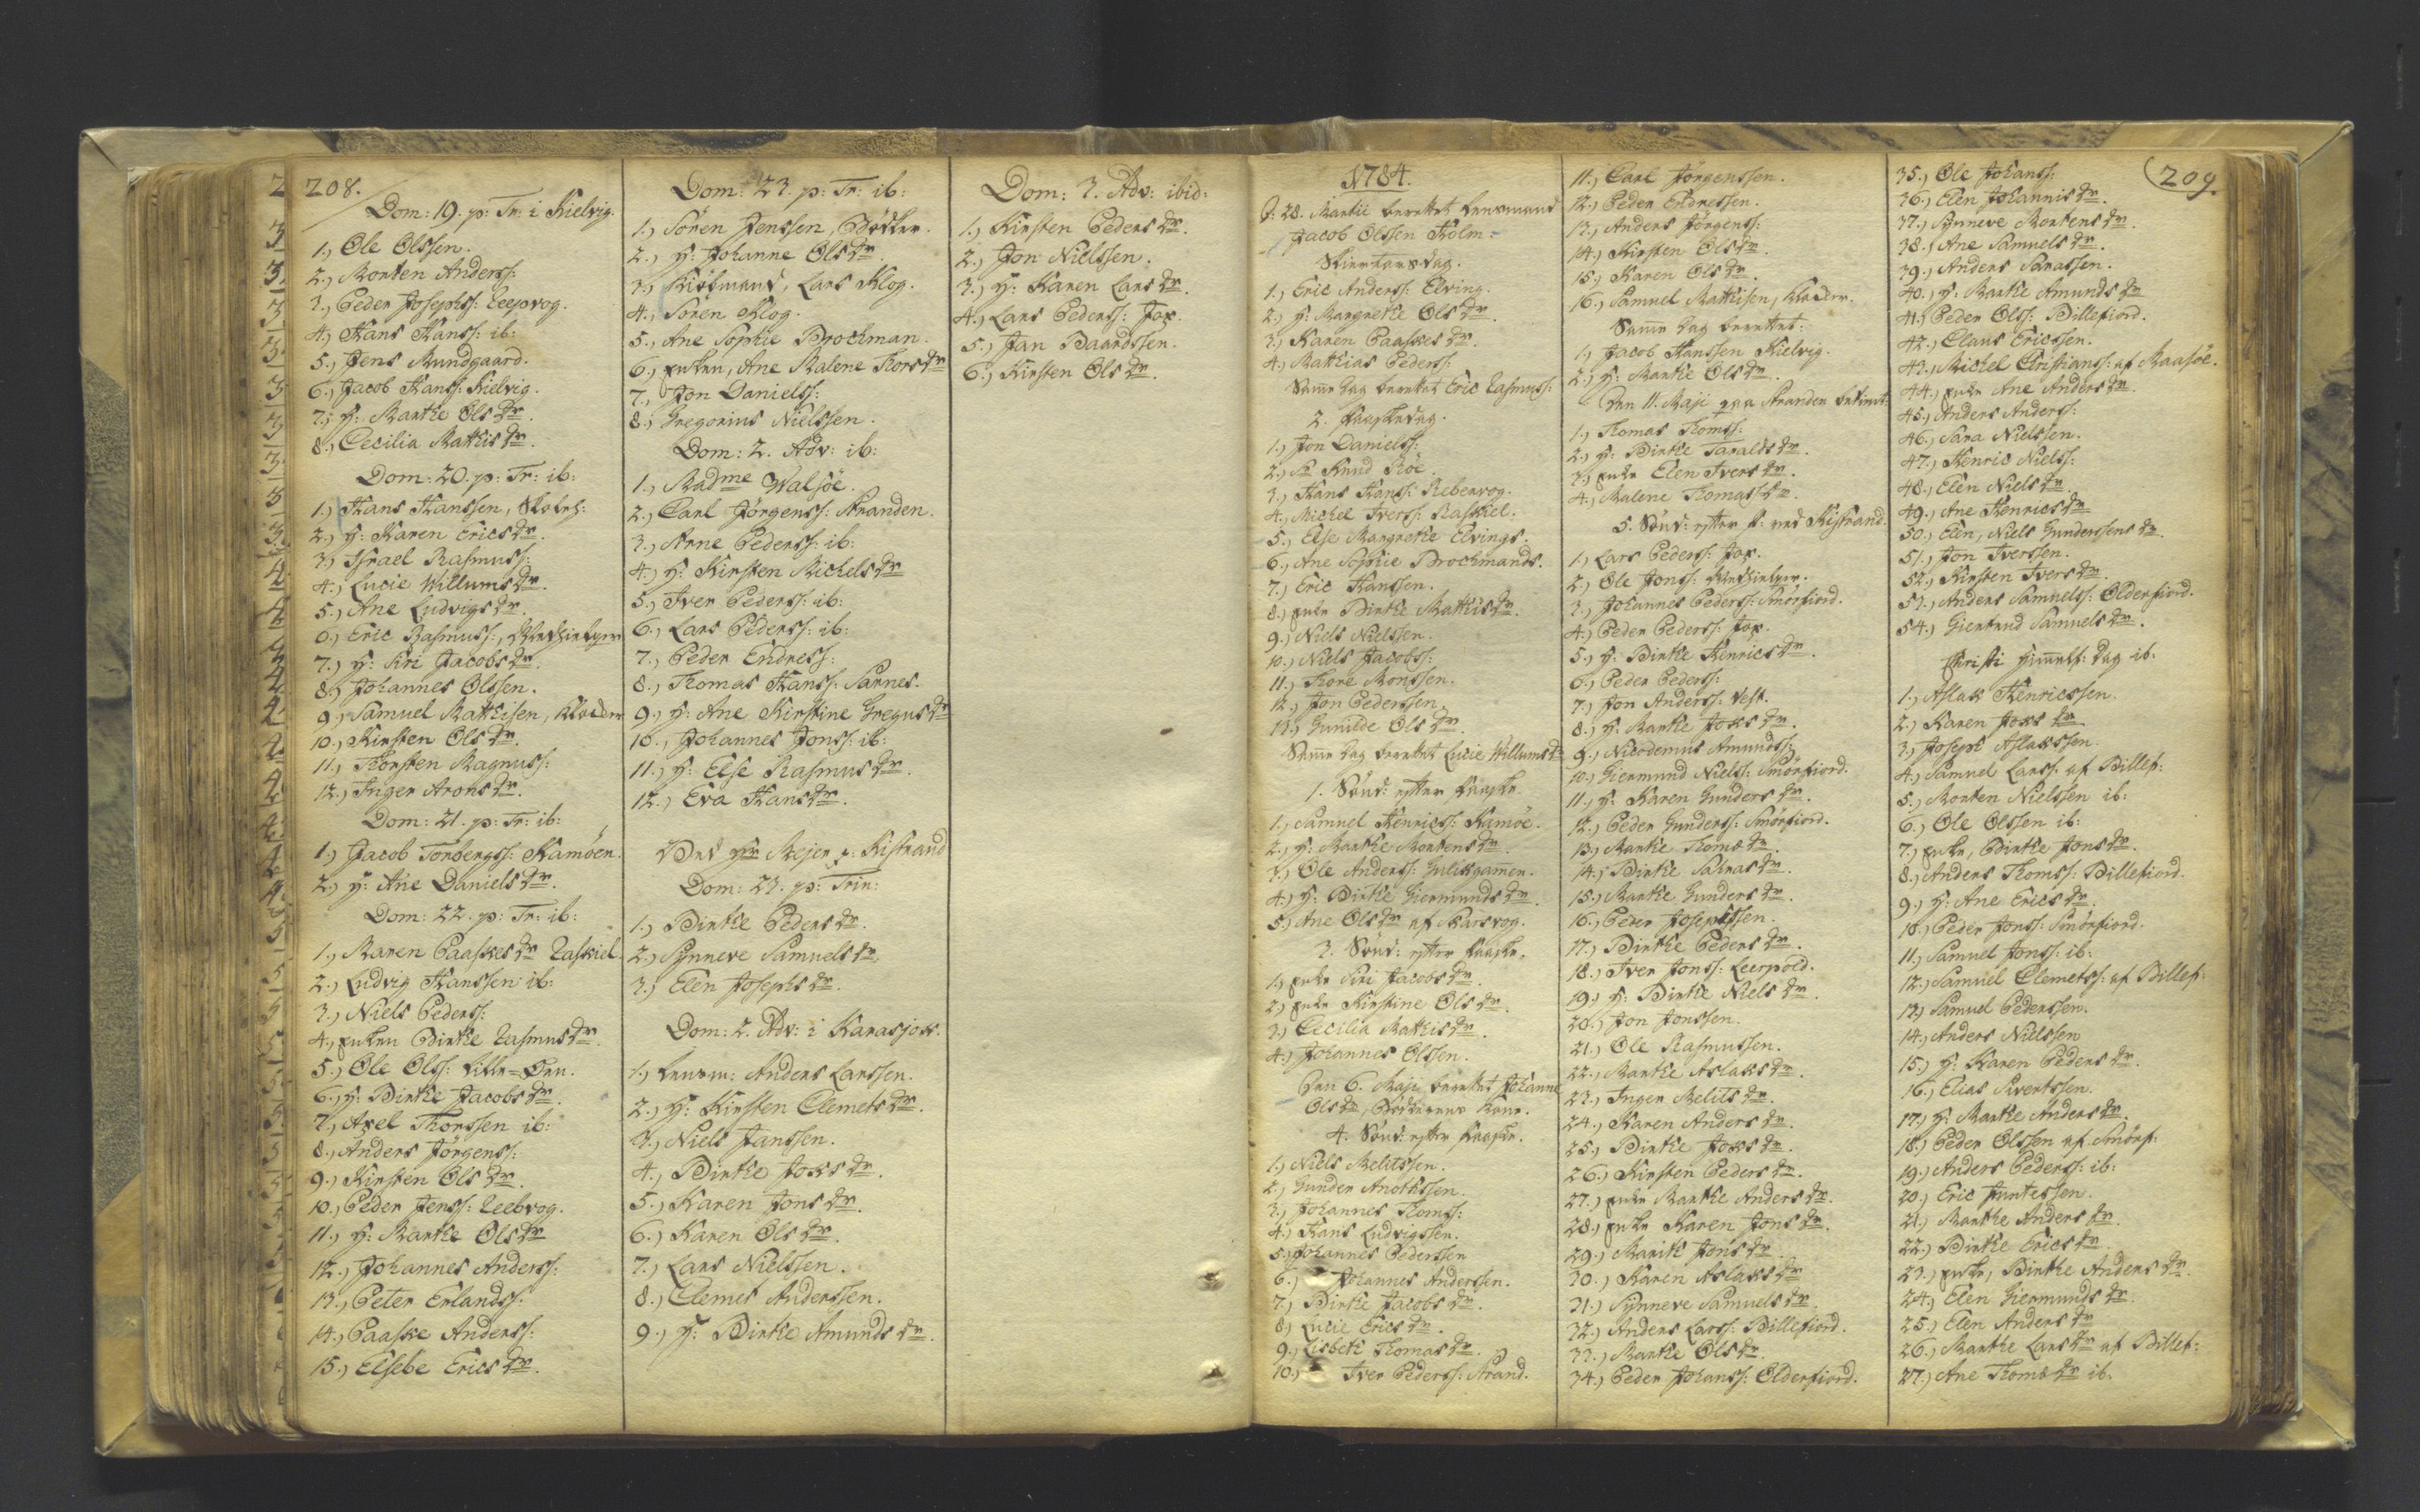 208.
Dom: 19. p: Tr: i Kielvig.
1., Ole Olssen.
2., Morten Anderss:
3., Peder Josephss: Leepvog.
4., Hans Hanss: ib:
5., Jens Mundgaard.
6., Jacob Hanss: Kielvig.
7., H: Marthe Olsdr.
8., Cecilia Mathisdr.
Dom: 20. p: Tr: ib:
1., Hans Hanssen, Skoleh:
2., H: Karen Ericsdr.
3., Israel Rasmuss:
4., Lucie Willumsdr.
5., Ane Ludvigsdr.
6., Eric Rasmuss:, Medhielper
7., H: Siri Jacobsdr.
8., Johannes Olssen.
9., Samuel Mathisen, Klocker
10., Kirsten Olsdr.
11., Thorsten Magnuss:
12., Inger Aronsdr.
Dom: 21. p: Tr: ib:
1., Jacob Torbergss: Kamöen.
2., H: Ane Danielsdr.
Dom: 22. p: Tr: ib:
1., Maren Paaskesdr
2., Ludvig Hanssen ib:
3., Niels Pederss:
4., Enken Birthe Rasmusdr.
5., Ole Olss:
6., H: Birthe Jacobsdr.
7., Axel Thorssen ib:
8., Anders Jörgenss:
9., Kirsten Olsdr.
10., Peder Jenss: Leebvog.
11., H: Marthe Olsdr
12., Johannes Anderss:
13., Peter Erlandss:
14., Paaske Anderss:
15., Elsebe Ericsdr.
Dom: 23. p: Tr: ib:
1., Sören Jenssen, Bödker.
2., H: Johanne Olsdr.
3., Kiöbmand, Lars Klog.
4., Sören Klog.
5., Ane Sophie Brochman.
6., Enken, Ane Malene Thorsdr
7., Jon Danielss:
8., Gregorius Nielssen.
Dom: 2. Adv: ib:
1., Madme Walsöe.
2., Carl Jörgenss: Stranden.
3., Arne Pederss: ib:
4., H: Kirsten Michelsdr
5., Iver Pederss: ib:
6., Lars Pederss: ib:
7., Peder Endress:
8., Thomas Hanss: Sarnes.
9., H: Ane Kirstine Gregusdr
10., Johannes Jonss: ib:
11., H: Else Rasmusdr.
12., Eva Hansdr.
Ved Hr Mejer p: Kistrand
Dom: 23. p: Trin:
1., Birthe Pedersdr.
2., Synneve Samuelsdr.
3., Elen Josephsdr.
Dom: 2. Adv: i Karasjock.
1., Lensm: Anders Larssen.
2., H: Kirsten Clemetsdr.
3., Niels Janssen.
4., Birthe Joksdr.
5., Karen Jonsdr.
6., Karen Olsdr.
7., Lars Nielssen.
8., Clemet Anderssen.
9., H: Birthe Amundsdr.
Dom: 3. Adv: ibid:
1., Kirsten Pedersdr.
2., Jon Nielssen.
3., H: Karen Larsdr.
4., Lars Pederss: Jox.
5., Jan Baardssen.
6., Kirsten Olsdr.
1784.
D: 28. Martii berettet Lensmand
Jacob Olssen Holm:
Skiertorsdag.
1., Eric Anderss: Elving.
2., H: Margrethe Olsdr.
3., Karen Paaskesdr.
4., Mathias Pederss:
Samme dag berettet Eric Rasmuss:
2. Paaskedag.
1., Jon Danielss:
2., Sr Knud Röe.
3., Hans Hanss: Rebervog.
4., Michel Iverss:
5., Else Margrethe Elvings.
6., Ane Sophie Brochmands.
7., Eric Hanssen.
8., Enke Birthe Mathisdr.
9., Niels Nielssen.
10., Niels Jacobss:
11., Thore Monssen.
12., Jon Pederssen
13., Gunilde Olsdr.
Samme dag berettet Lucie Willumsdr
1. Sönd: efter Paaske.
1., Samuel Henricss: Kamöe.
2., H: Marthe Mortensdr.
3., Ole Anderss: Gulikgammen.
4., H: Birthe Giermundsdr.
5., Ane Olsdr af Marsvog.
3. Sönd: efter Paaske.
1., Enke Siri Jacobsdr.
2., Enke Kirstine Olsdr.
3., Cecilia Mathisdr.
4., Johannes Olssen.
Den 6. Maji berettet Johanne
Olsdr, Bödkerens Kone.
4. Sönd: efter Paaske.
1., Niels Melitssen.
2., Gunder Anothssen.
3., Johannes Thomss:
4., Hans Ludvigssen.
5., Johannes Pederssen
6., Johannes Anderssen.
7., Birthe Jacobsdr.
8., Lucie Ericsdr.
9., Lisbeth Thomasdr.
10., Iver Pederss: Strand.
11., Carl Jörgenssen.
12., Peder Endressen.
13., Anders Jörgenss:
14., Kirsten Olsdr.
15., Karen Olsdr.
16., Samuel Mathisen, Klocker.
Samme dag berettet:
1., Jacob Hanssen Kielvig.
2., H: Marthe Olsdr.
Den 11. Maji paa Stranden betient:
1., Thomas Thomss:
2., H: Birthe Taraldsdr.
3., Enke Elen Iversdr.
4., Malene Thomasdr.
5. Sönd: efter P: ved Kistrand.
1., Lars Pederss: Jox.
2., Ole Jonss: Medhielper.
3., Johannes Pederss: Smörfiord.
4., Peder Pederss: Jox.
5., H: Birthe Henricsdr.
6., Peder Pederss:
7., Jon Anderss: Vest.
8., H: Marthe Joksdr.
9., Nicodemus Amundss:
10., Giermund Nielss: Smörfiord.
11., H: Karen Gundersdr.
12., Peder Gunderss: Smörfiord.
13., Marthe Thomædr.
14., Birthe Sarasdr.
15., Marthe Gundersdr.
16., Peder Josephssen.
17., Birthe Pedersdr.
18., Iver Jonss: Leerpold.
19., H: Birthe Nielsdr.
20., Jon Jonssen.
21., Ole Rasmussen.
22., Marthe Aslaksdr.
23., Inger Melitsdr.
24., Karen Andersdr.
25., Birthe Joksdr.
26., Kirsten Pedersdr.
27., Enke Marthe Andersdr.
28., Enke Karen Jonsdr.
29., Marith Jonsdr.
30., Karen Aslaksdr
31., Synneve Samuelsdr.
32., Anders Larss: Billefiord.
33., Marthe Olsdr.
34., Peder Johanss: Olderfiord.
209.
35., Ole Johanss:
36., Elen Johannisdr.
37., Synneve Mortensdr.
38., Ane Samuelsdr.
39., Anders Sarassen.
40., H: Marthe Amundsdr
41., Peder Olss: Billefiord.
42., Claus Ericssen.
43., Michel Christianss: af Maasöe.
44., Enke Ane Andersdr.
45., Anders Anderss:
46., Sara Nielssen.
47., Henric Nielss:
48., Elen Nielsdr.
49., Ane Henricsdr
50., Elen, Niels Gunderssens dr.
51., Jon Iverssen.
52., Kirsten Iversdr.
53., Anders Samuelss: Olderfiord.
54., Giertrud Samuelsdr.
Christi Himmelf: Dag ib:
1., Aslak Henricssen.
2., Karen Joksdr
3., Joseph Aslakssen.
4., Samuel Larss: af Billef:
5., Morten Nielssen ib:
6., Ole Olssen ib:
7., Enke, Birthe Jonsdr.
8., Anders Thomss: Billefiord.
9., H: Ane Ericsdr.
10., Peder Jonss: Smörfiord.
11., Samuel Jonss: ib:
12., Samuel Clemetss: af Billef:
13., Samuel Pederssen.
14., Anders Nielssen
15., H: Karen Pedersdr.
16., Elias Sivertssen.
17., H: Marthe Andersdr.
18., Peder Olssen af Smörf:
19., Anders Pederss: ib:
20., Eric Juntessen.
21., Marthe Andersdr.
22., Birthe Ericsdr.
23., Enke, Birthe Andersdr.
24., Elen Giermundsdr.
25., Elen Andersdr
26., Marthe Larsdr af Billef:
27., Ane Thomædr ib.